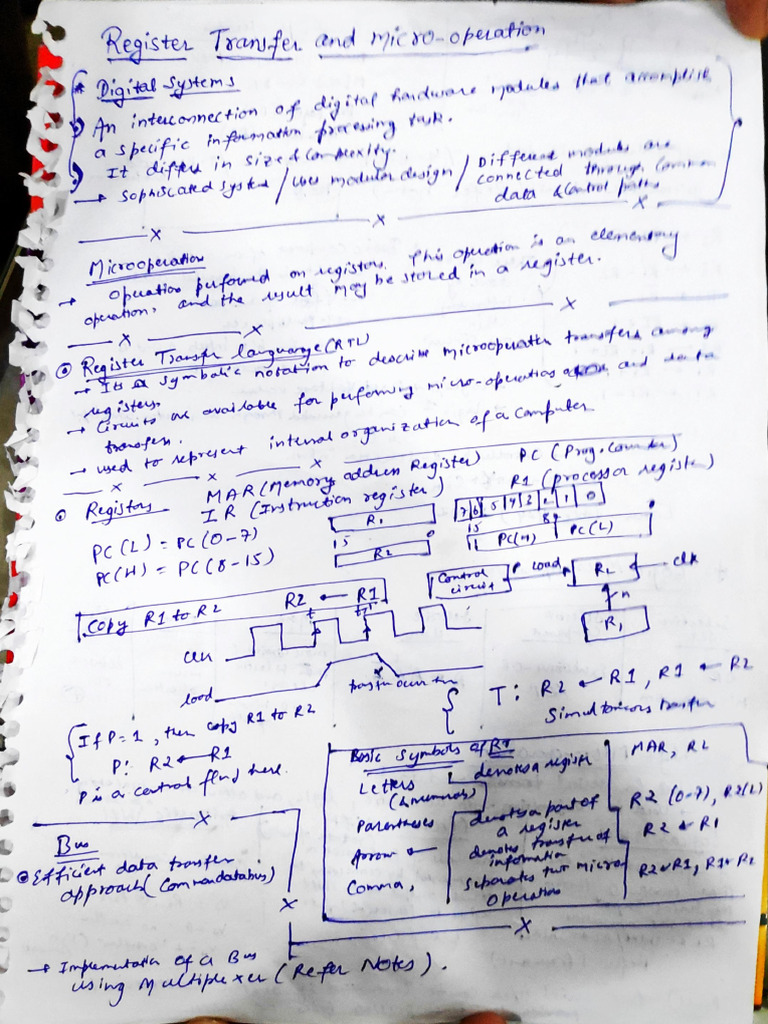 Register Transfer and micro-operation
* Digital Systems
An interconnection of digital hardware modules that accomplish
a specific information processing task.
It differs in size & complexity.
→ Sophiscated system / Uses modular design / Different modules are
connected through common
data & control paths
Microoperation
→ Operation performed on registers. This operation is an elementary
operation, and the result may be stored in a register.
Register Transfer language (RTL)
→ It is symbolic notation to describe microoperation transfers among
registers.
→ Circuits are available for performing micro-operation and data
transfers.
→ used to represent internal organization of a computer
Registers
MAR (Memory address Register)
PC (Prog. Counter)
IR (Instruction register)
R1 (processor register)
PC(L) = PC(0-7)
PC(H) = PC(8-15)
R1
7 6 5 4 3 2 1 0
15 0
R2
15 8 0
PC(H) PC(L)
Copy R1 to R2 R2 ← R1
Control
circuit
P Load
R2
clk
n
R1
t t+1
Clk
load
T: R2 ← R1, R1 ← R2
Simultaneous transfer
If P=1, then copy R1 to R2
P: R2 ← R1
P is a control here.
Basic Symbols of RT
Letters denotes a register MAR, R2
Parentheses denotes a part of
a register R2 (0-7), R2(L)
Arrow ← denotes transfer of
information R2 ← R1
Comma , Separates two micro
operation R2 ← R1, R1 ← R2
Bus
Efficient data transfer
approach (Common databus)
→ Implementation of a Bus
using Multiplexer (Refer Notes).